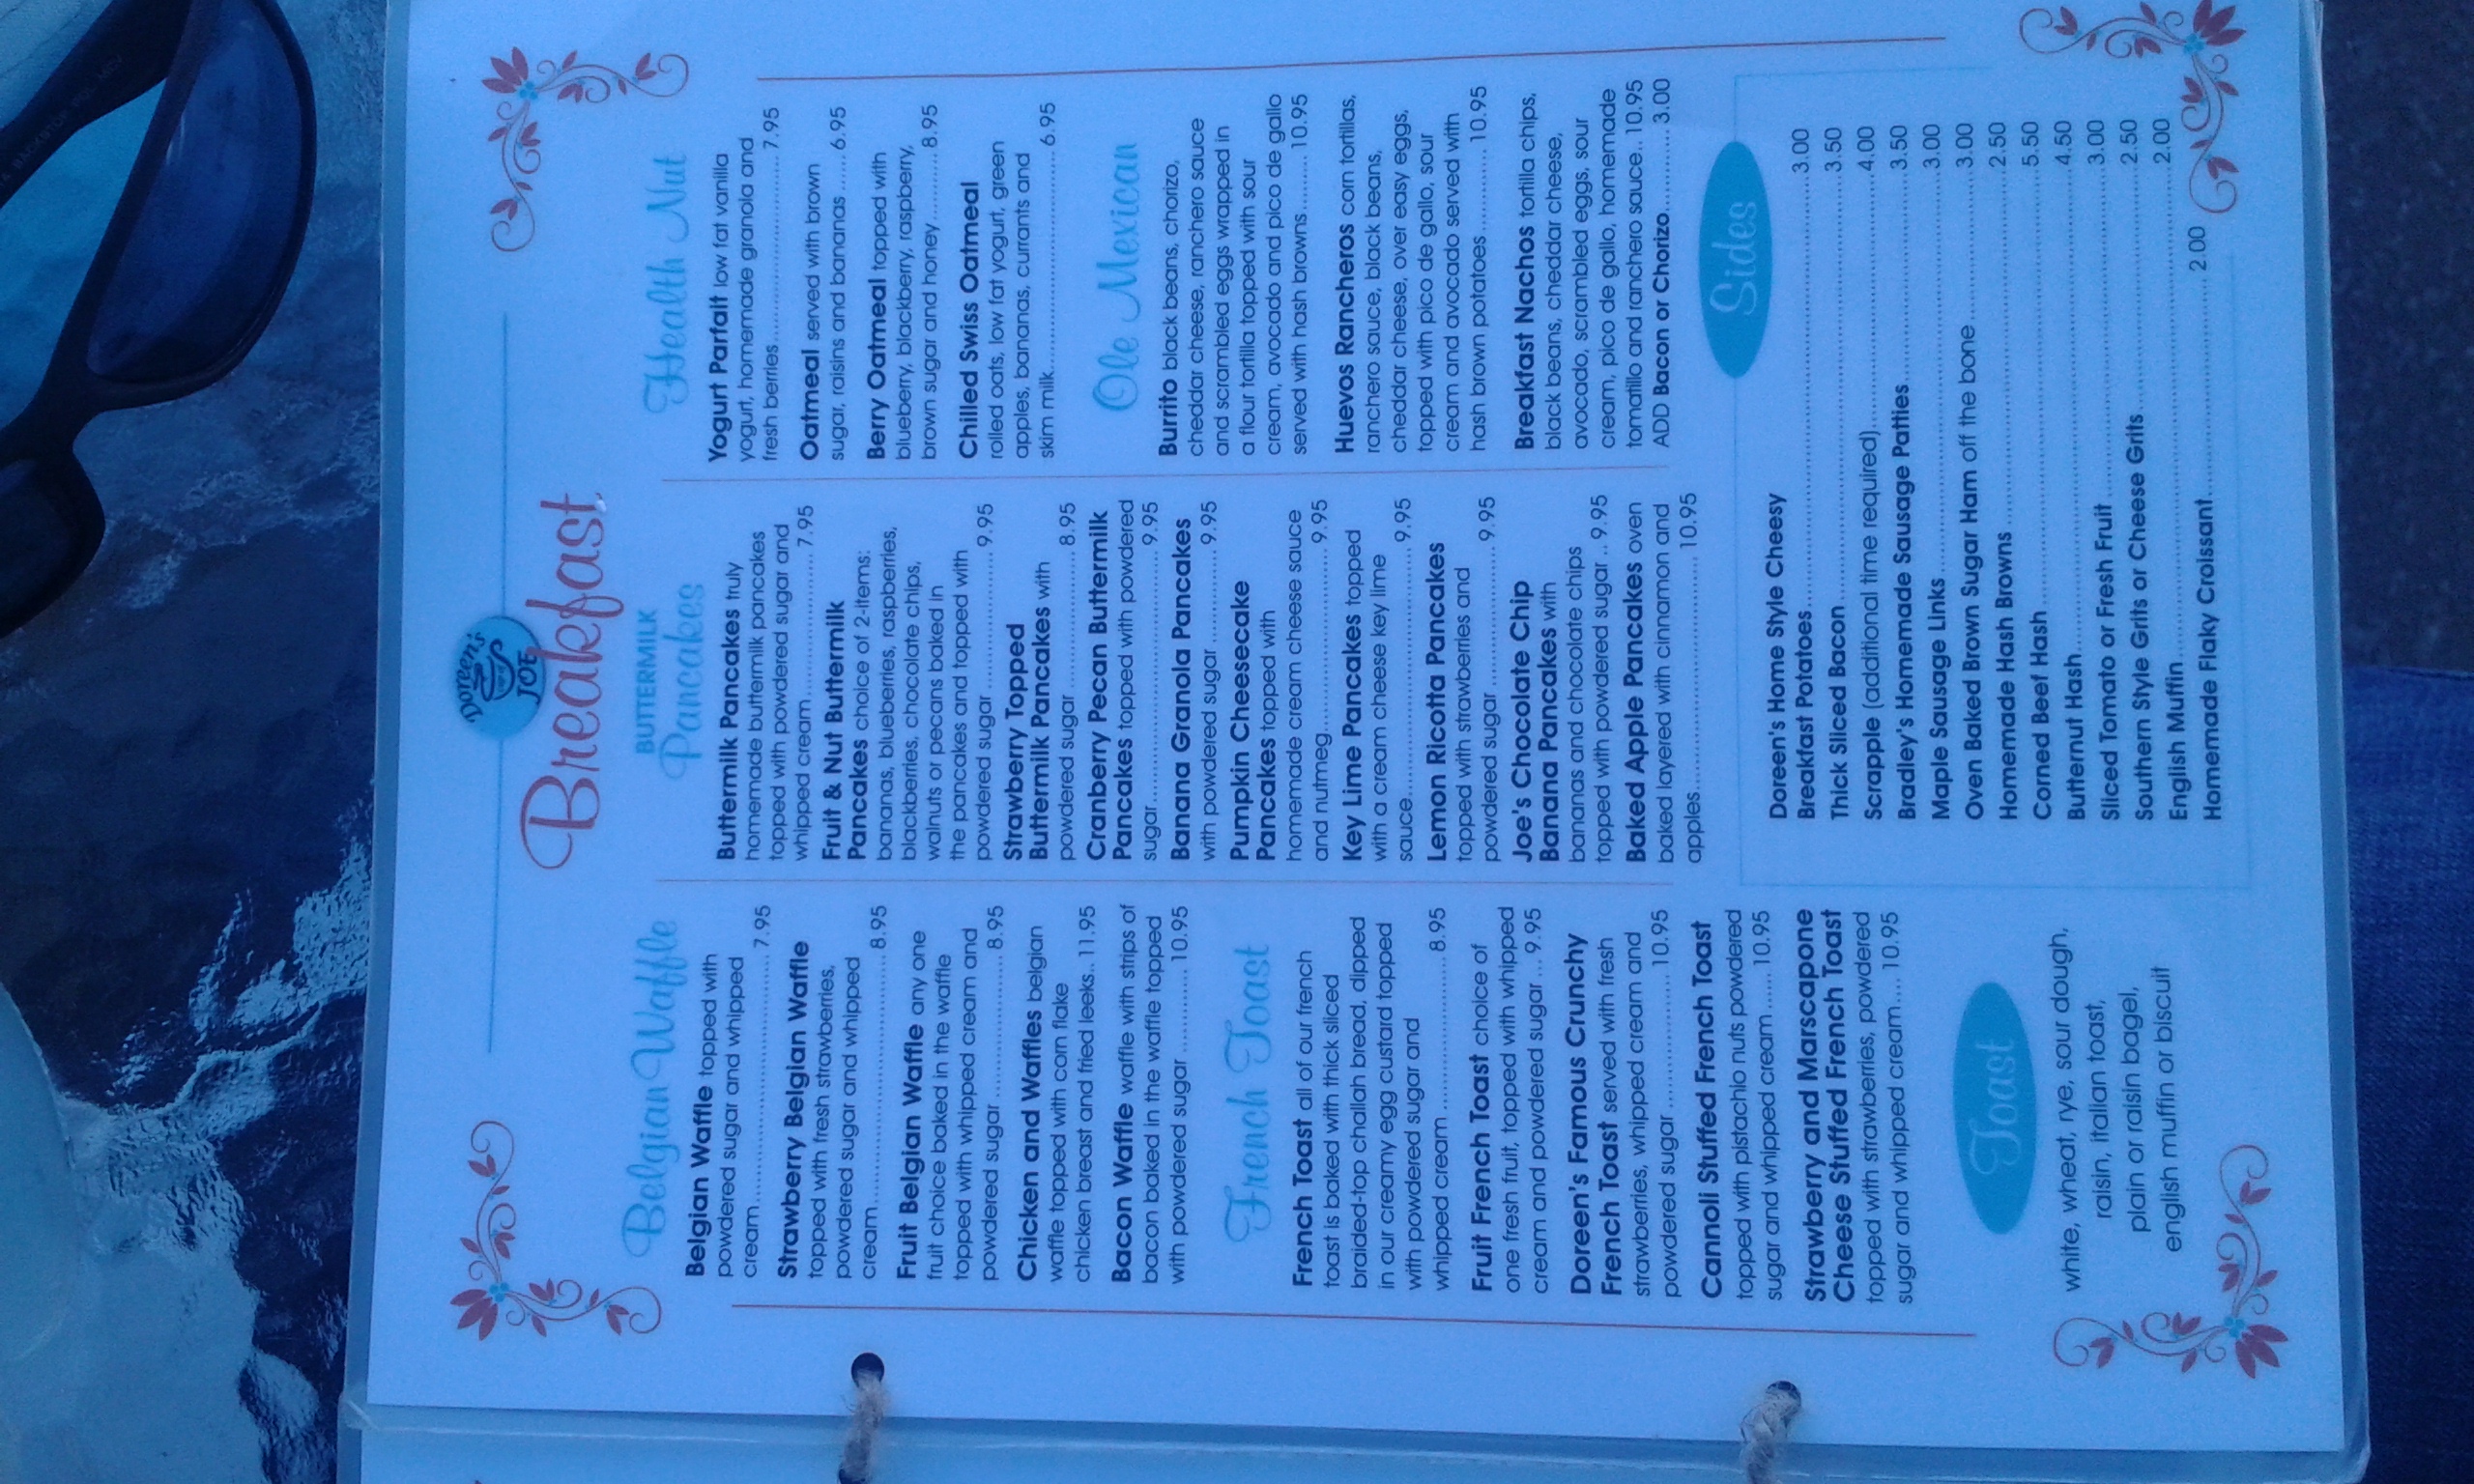 Doreen's
CUP OF
JOE
Breakfast
Belgian Waffle
Belgian Waffle topped with
powdered sugar and whipped
cream.......................................7.95
Strawberry Belgian Waffle
topped with fresh strawberries,
powdered sugar and whipped
cream.......................................8.95
Fruit Belgian Waffle any one
fruit choice baked in the waffle
topped with whipped cream and
powdered sugar ..................8.95
Chicken and Waffles belgian
waffle topped with corn flake
chicken breast and fried leeks.. 11.95
Bacon Waffle waffle with strips of
bacon baked in the waffle topped
with powdered sugar ............. 10.95
French Toast
French Toast all of our french
toast is baked with thick sliced
braided-top challah bread, dipped
in our creamy egg custard topped
with powdered sugar and
whipped cream ........................ 8.95
Fruit French Toast choice of
one fresh fruit, topped with whipped
cream and powdered sugar ... 9.95
Doreen's Famous Crunchy
French Toast served with fresh
strawberries, whipped cream and
powdered sugar ..................... 10.95
Cannoli Stuffed French Toast
topped with pistachio nuts powdered
sugar and whipped cream....... 10.95
Strawberry and Marscapone
Cheese Stuffed French Toast
topped with strawberries, powdered
sugar and whipped cream.... 10.95
Toast
white, wheat, rye, sour dough,
raisin, italian toast,
plain or raisin bagel,
english muffin or biscuit
BUTTERMILK
Pancakes
Buttermilk Pancakes truly
homemade buttermilk pancakes
topped with powdered sugar and
whipped cream...................... 7.95
Fruit & Nut Buttermilk
Pancakes choice of 2-items:
bananas, blueberries, raspberries,
blackberries, chocolate chips,
walnuts or pecans baked in
the pancakes and topped with
powdered sugar ..................... 9.95
Strawberry Topped
Buttermilk Pancakes with
powdered sugar ..................... 8.95
Cranberry Pecan Buttermilk
Pancakes topped with powdered
sugar....................................... 9.95
Banana Granola Pancakes
with powdered sugar .............. 9.95
Pumpkin Cheesecake
Pancakes topped with
homemade cream cheese sauce
and nutmeg............................ 9.95
Key Lime Pancakes topped
with a cream cheese key lime
sauce.......................................9.95
Lemon Ricotta Pancakes
topped with strawberries and
powdered sugar ..................... 9.95
Joe's Chocolate Chip
Banana Pancakes with
bananas and chocolate chips
topped with powdered sugar .. 9.95
Baked Apple Pancakes oven
baked layered with cinnamon and
apples..................................... 10.95
Health Nut
Yogurt Parfait low fat vanilla
yogurt, homemade granola and
fresh berries............................ 7.95
Oatmeal served with brown
sugar, raisins and bananas ......6.95
Berry Oatmeal topped with
blueberry, blackberry, raspberry,
brown sugar and honey ..........8.95
Chilled Swiss Oatmeal
rolled oats, low fat yogurt, green
apples, bananas, currants and
skim milk..................................6.95
Ole Mexican
Burrito black beans, chorizo,
cheddar cheese, ranchero sauce
and scrambled eggs wrapped in
a flour tortilla topped with sour
cream, avocado and pico de gallo
served with hash browns......... 10.95
Huevos Rancheros corn tortillas,
ranchero sauce, black beans,
cheddar cheese, over easy eggs,
topped with pico de gallo, sour
cream and avocado served with
hash brown potatoes ............. 10.95
Breakfast Nachos tortilla chips,
black beans, cheddar cheese,
avocado, scrambled eggs, sour
cream, pico de gallo, homemade
tomatillo and ranchero sauce.. 10.95
ADD Bacon or Chorizo............. 3.00
Sides
Doreen's Home Style Cheesy
Breakfast Potatoes........................................................ 3.00
Thick Sliced Bacon........................................................ 3.50
Scrapple (additional time required)............................... 4.00
Bradley's Homemade Sausage Patties.......................... 3.50
Maple Sausage Links..................................................... 3.00
Oven Baked Brown Sugar Ham off the bone.................. 3.00
Homemade Hash Browns ............................................. 2.50
Corned Beef Hash......................................................... 5.50
Butternut Hash.............................................................. 4.50
Sliced Tomato or Fresh Fruit.......................................... 3.00
Southern Style Grits or Cheese Grits............................. 2.50
English Muffin................................................................ 2.00
Homemade Flaky Croissant........................... 2.00